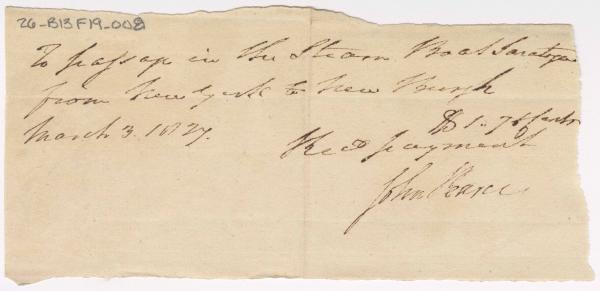 26-B13F19-008
To passage in the Steam Boat Saratoga
from New York to New Burgh
$1.75 Cents
March 3. 1827.
Recd payment
John Pearce